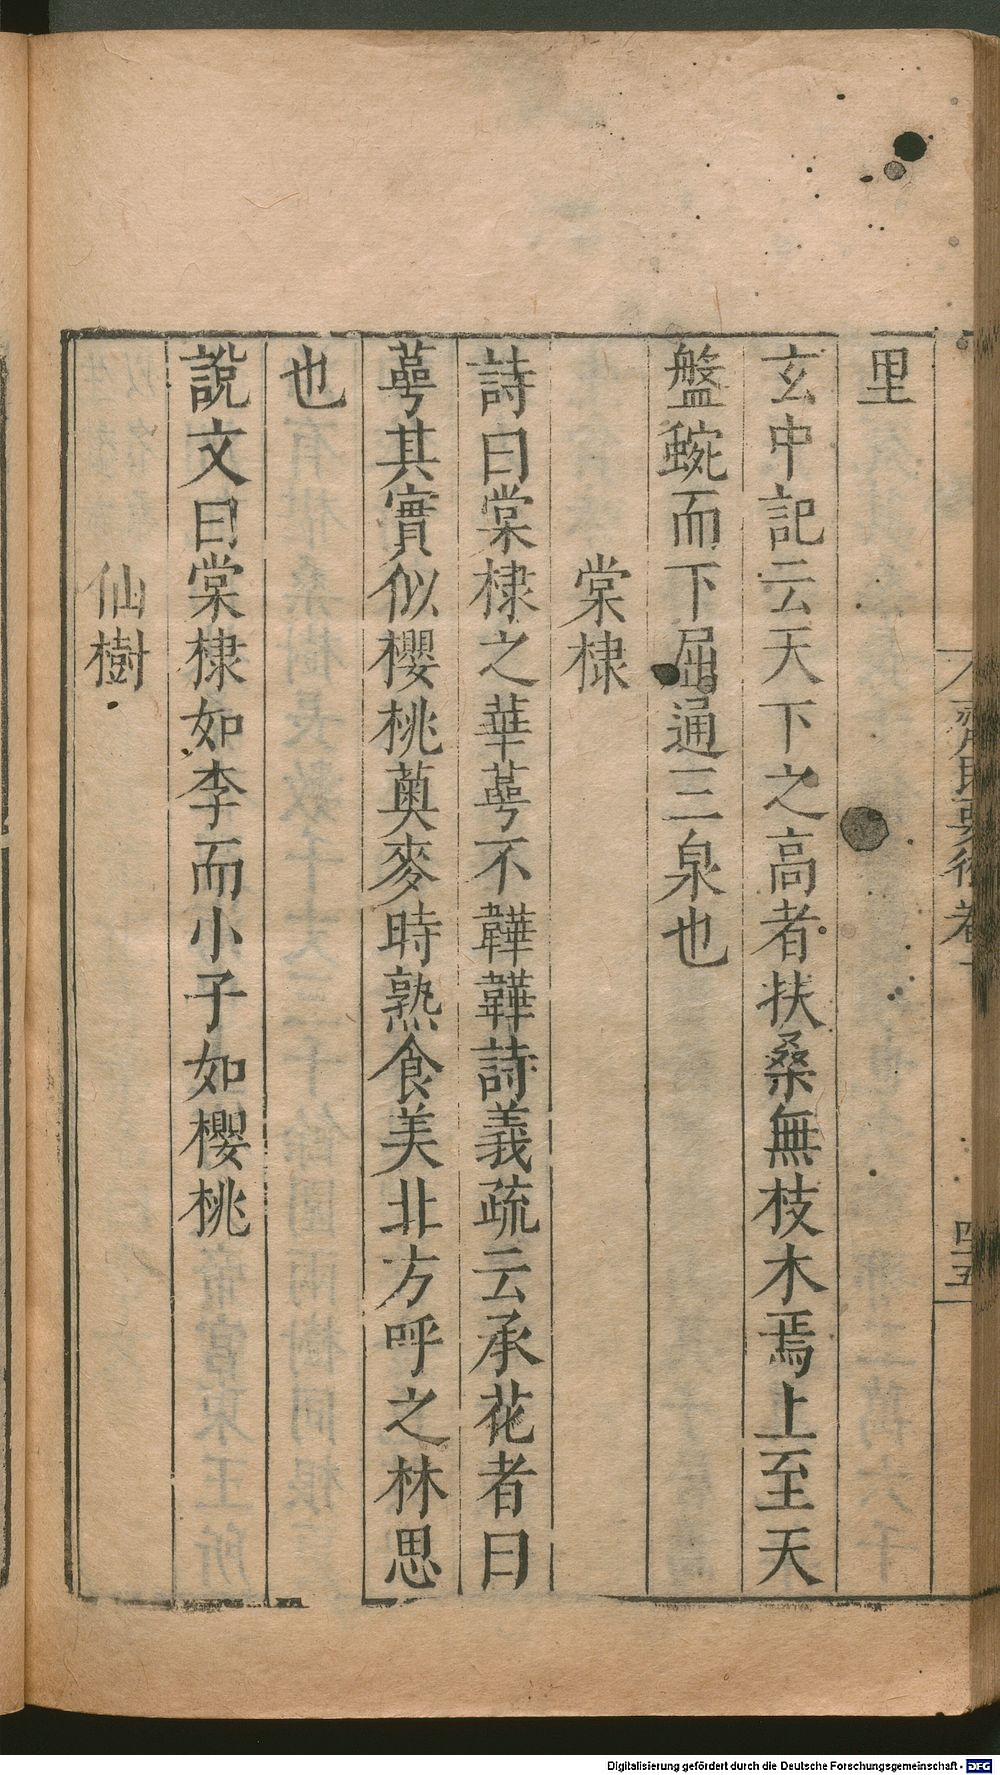 里
玄中記云天下之高者扶桑無枝木焉上至天
盤蜿而下屈通三泉也
棠棣
詩曰棠棣之華萼不韡韡詩義疏云承花者曰
萼其實似櫻桃薁麥時熟食美北方呼之林思
也
說文曰棠棣如李而小子如櫻桃
仙樹
齊民要術卷十
四五
Digitalisierung gefördert durch die Deutsche Forschungsgemeinschaft - DFG